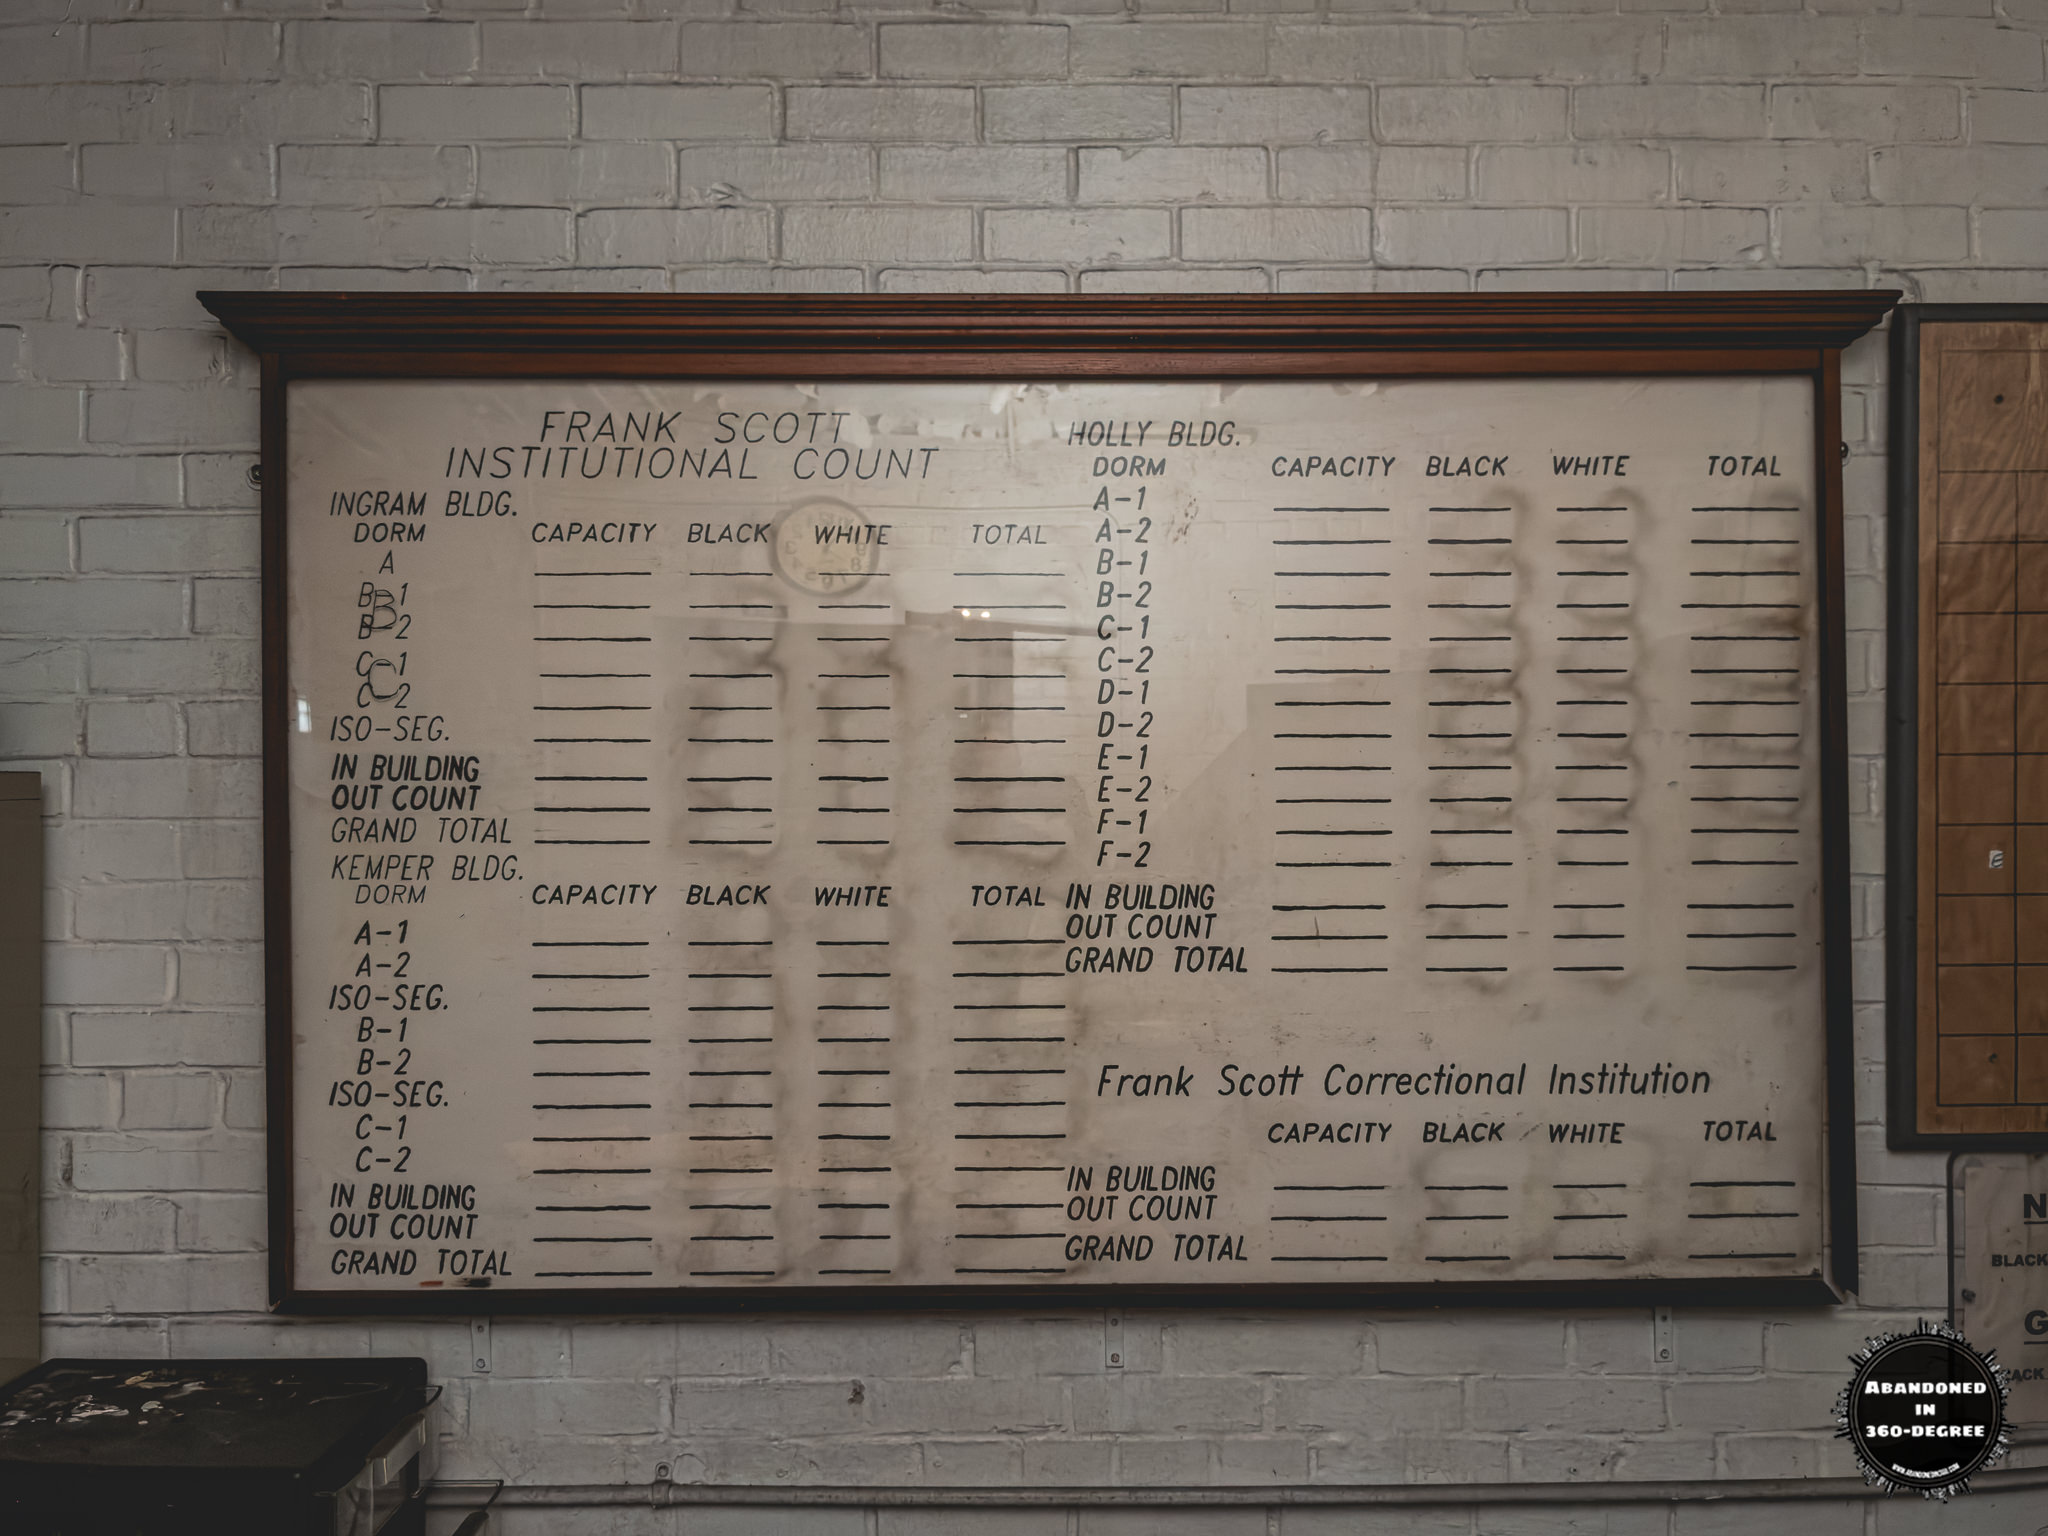 FRANK SCOTT
INSTITUTIONAL COUNT
INGRAM BLDG.
DORM CAPACITY BLACK WHITE TOTAL
A
B-1
B
B-2
C-1
C
C-2
ISO-SEG.
IN BUILDING
OUT COUNT
GRAND TOTAL
KEMPER BLDG.
DORM CAPACITY BLACK WHITE TOTAL
A-1
A-2
ISO-SEG.
B-1
B-2
ISO-SEG.
C-1
C-2
IN BUILDING
OUT COUNT
GRAND TOTAL
HOLLY BLDG.
DORM CAPACITY BLACK WHITE TOTAL
A-1
A-2
B-1
B-2
C-1
C-2
D-1
D-2
E-1
E-2
F-1
F-2
IN BUILDING
OUT COUNT
GRAND TOTAL
Frank Scott Correctional Institution
CAPACITY BLACK WHITE TOTAL
IN BUILDING
OUT COUNT
GRAND TOTAL
E
N
BLACK
G
ABANDONED
IN
360-DEGREE